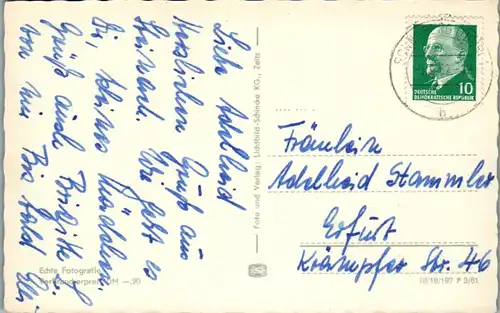 Liebe Adelheid
Herzlichen Gruß aus
Wie geht es
Dir, kleines Mädchen.
Grüß auch Brigitte
von mir Bis bald Elly
Echte Fotografie
Verbraucherpreis DM —.20
Foto und Verlag: Lichtbild-Schincke KG., Zeitz
10
DEUTSCHE
DEMOKRATISCHE REPUBLIK
b
Fräulein
Adelheid Stammler
Erfurt
Krämpfer Str. 46
18/18/197 P 3/61